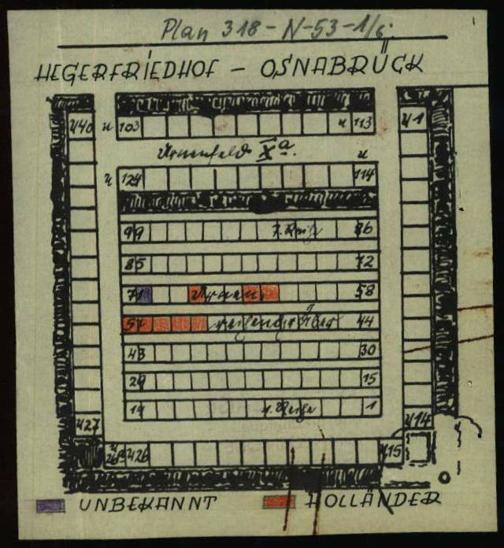 Plan 318-N-53-1/6.
HEGERFRIEDHOF - OSNABRÜCK
440 u 103 u 113 41
Urnenfeld Xa.
u 124 u 114
99 7. Reihe 86
85 72
71 Urnen 58
57 Reihengräber 44
43 30
29 15
14 1. Reihe 1
427 414
426 415
UNBEKANNT HOLLÄNDER